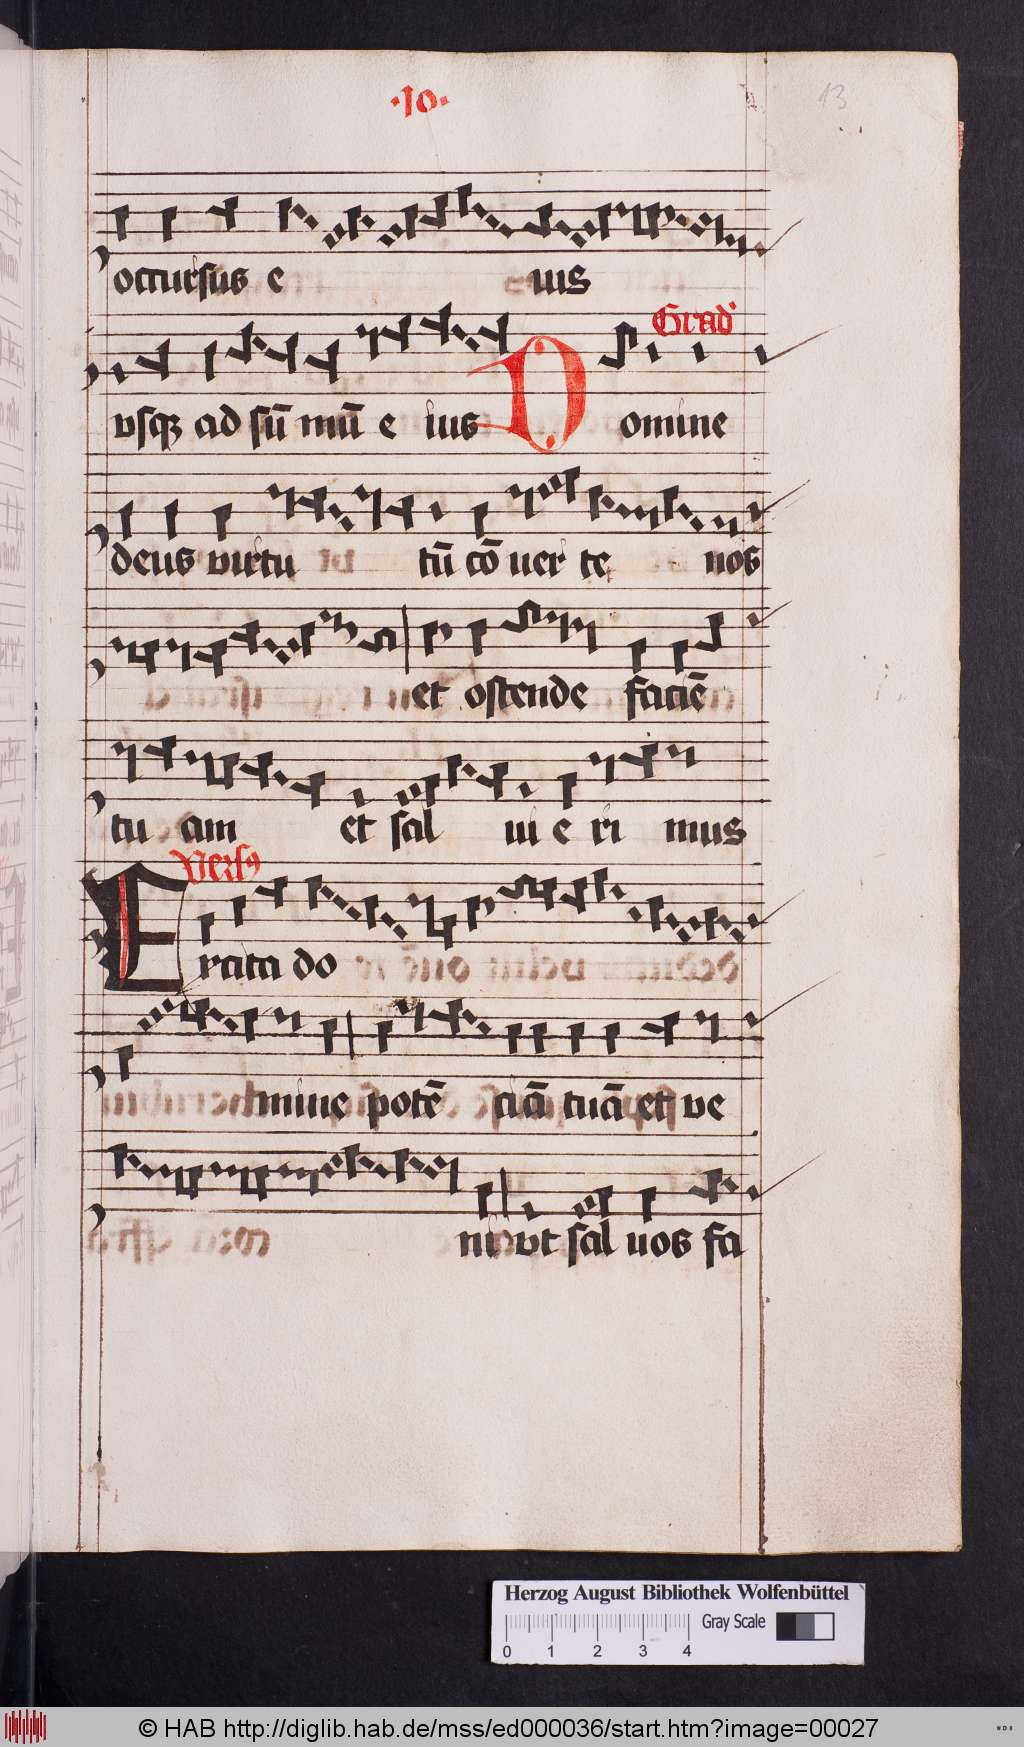 ·10·
13
occursus e ius
Grad᾽
vsqꝫ ad sū mū e ius Domine
deus virtu tū cō uer te nos
et ostende faciē
tu am et sal ui e ri mus
Versꝰ
Excita do
mine potē ciā tuā et ve
ni vt sal uos fa
Herzog August Bibliothek Wolfenbüttel
Gray Scale
0 1 2 3 4
© HAB http://diglib.hab.de/mss/ed000036/start.htm?image=00027